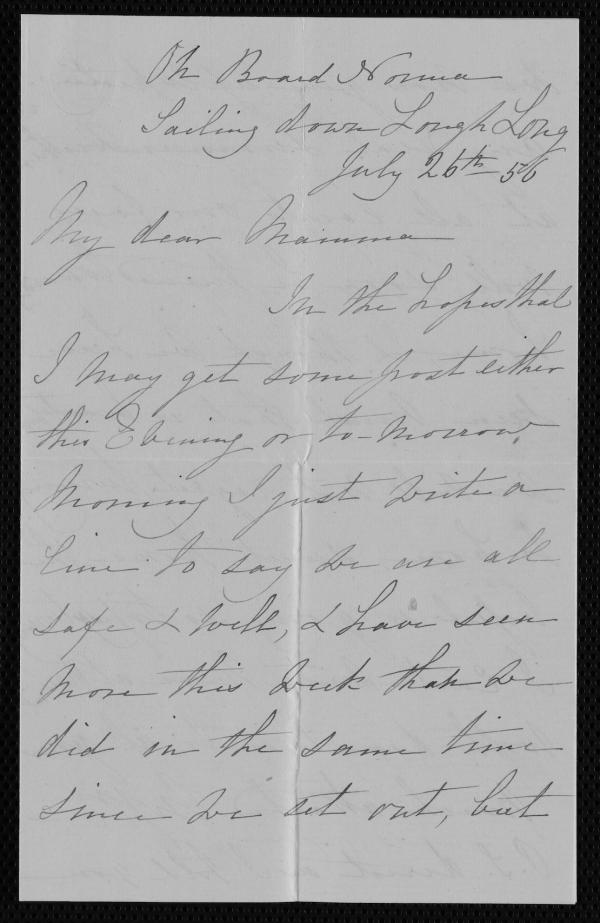 On Board Norma
Sailing down Lough Long
July 26th 56
My dear Mamma
In the hopes that
I may get some post either
this Evening or to-morrow
Morning I just write a
line to say we are all
safe & well, & have seen
more this week than we
did in the same time
since we set out, but